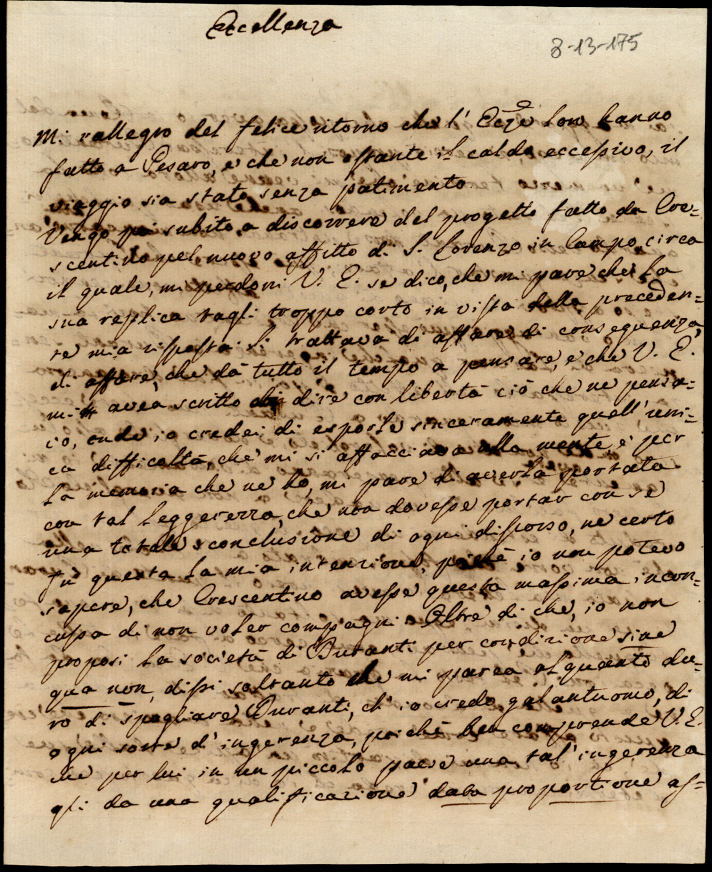 Eccellenza
8-13-175
Mi rallegro del felice ritorno che l'Ecc.ze loro hanno
fatto a Pesaro, e che non ostante il caldo eccessivo, il
viaggio sia stato senza patimento
Vengo poi subito a discorrere del progetto fatto da Cre=
scentino pel nuovo affitto di S. Lorenzo in Campo, circa
il quale, mi perdoni V. E. se dico, che mi pare che la
sua replica tagli troppo corto in vista della preceden=
te mia risposta. Si trattava di affare di conseguenza,
di affare, che dà tutto il tempo a pensare, e che V. E.
mi avea scritto di dire con libertà ciò che ne pensa=
vo, onde io credei di esporle sinceramente quell'uni=
ca difficoltà, che mi si affacciava alla mente, e per
la memoria che ne ho, mi pare di averla portata
con tal leggerezza, che non dovesse portar con se
una totale sconclusione di ogni discorso, ne certo
fu questa la mia intenzione, poichè io non potevo
sapere, che Crescentino avesse questa massima incon=
cussa di non voler compagni. Oltre di che, io non
proposi la società di Buranti per condizione sine
qua non, dissi soltanto che mi parea alquanto du=
ro di spogliare Buranti, ch'io credo galantuomo, di
ogni sorte d'ingerenza, poichè ben comprende V. E.
che per lui in un piccolo paese una tal'ingerenza
gli da una qualificazione data proportione as=